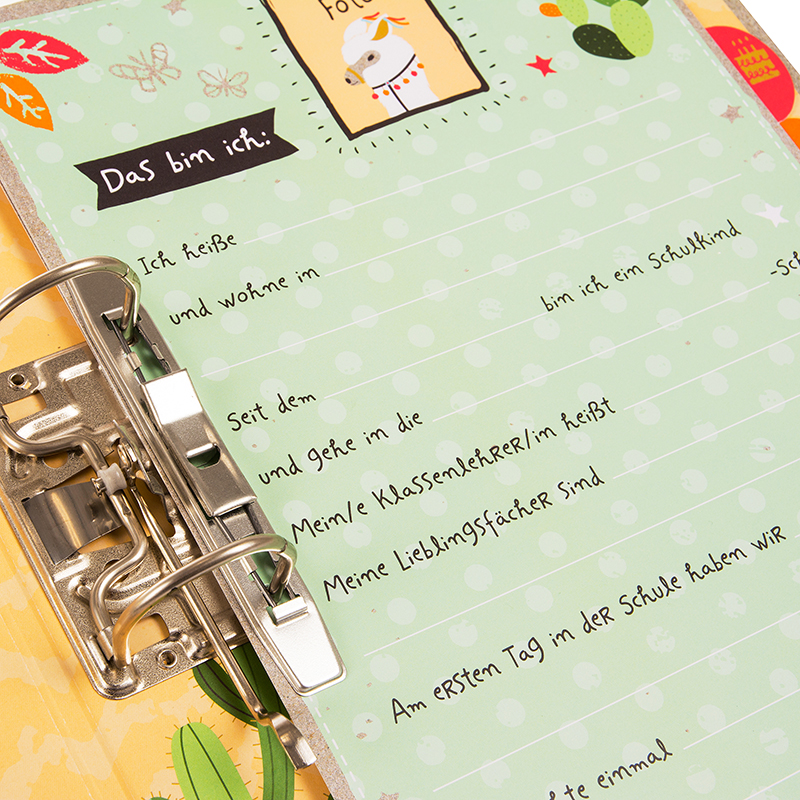 Foto
Das bin ich:
Ich heiße
und wohne in
Seit dem bin ich ein Schulkind
und gehe in die -Sch
Mein/e Klassenlehrer/in heißt
Meine Lieblingsfächer sind
Am ersten Tag in der Schule haben wir
te einmal